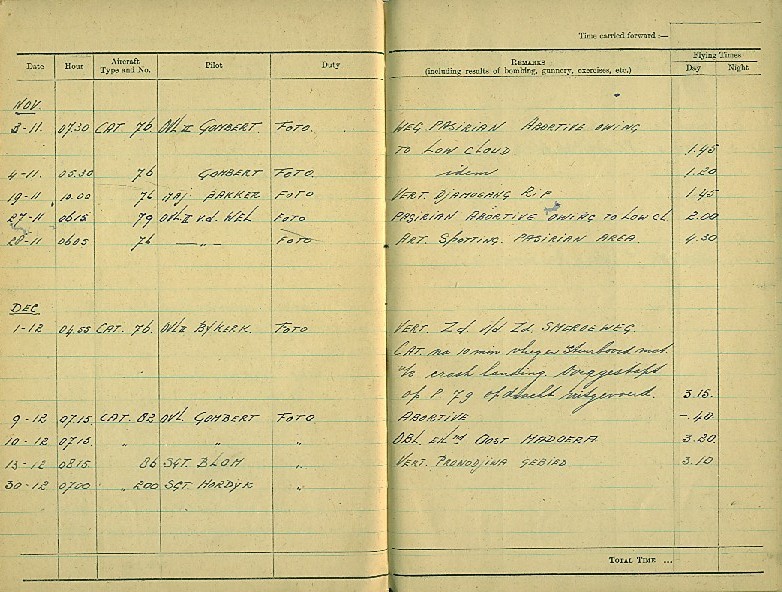 Time carried forward :—
Date Hour Aircraft Type and No. Pilot Duty Remarks (including results of bombing, gunnery, exercises, etc.) Flying Times Day Night
NOV.
3-11 07.30 CAT 76 OVL II GOMBERT. FOTO. WEG PASIRIAN ABORTIVE OWING
TO LOW CLOUD 1.45
4-11. 05.30 76 GOMBERT FOTO. idem 1.20
19-11 10.00 76 MAJ BAKKER FOTO VERT. DJAMOEANG RIP 1.45
27-11 0615 79 OVL II v.d. WEL FOTO PASIRIAN ABORTIVE OWING TO LOW CL 2.00
28-11 0605 76 —„— FOTO ART. SPOTTING. PASIRIAN AREA. 4.30
DEC
1-12 04.55 CAT. 76 OVL II BYKERK. FOTO VERT. Zd. Zd. SMEROEWEG.
CAT. na 10 min vliegen Stuurboord mot.
u/s crash landing Overgestapt
op P 79 opdracht uitgevoerd. 3.15.
9-12 07.15 CAT. 82 OVL. GOMBERT FOTO ABORTIVE –.40
10-12 07.15 „ „ „ OBL. OOST MADOERA 3.20
13-12 0815 86 SGT. BLOM „ VERT. PRONODJIWA GEBIED 3.10
30-12 0700 „ 200 SGT. HORDYK „
Total Time ...